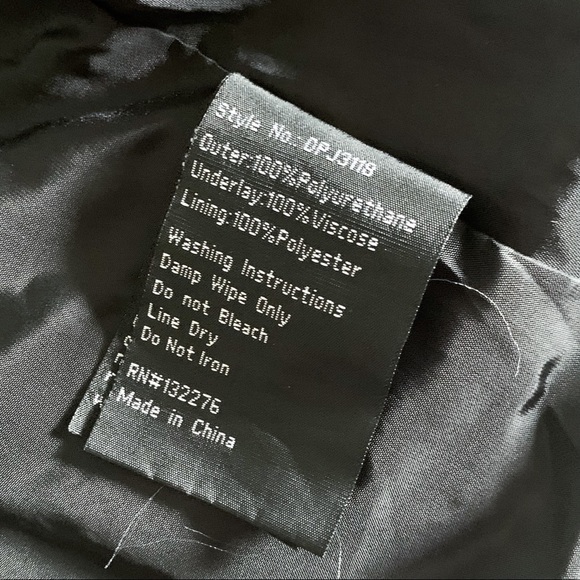 Style No: OPJ3118
Outer:100%Polyurethane
Underlay:100%Viscose
Lining:100%Polyester
Washing Instructions
Damp Wipe Only
Do not Bleach
Line Dry
Do Not Iron
RN#132276
Made in China